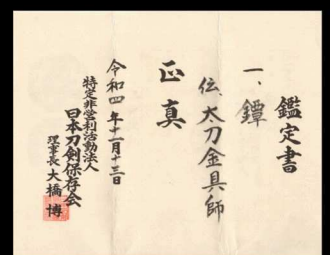 鑑定書
一、鐔
伝、太刀金具師
正真
令和四年十二月十三日
特定非営利活動法人
日本刀剣保存会
理事長 大橋 博